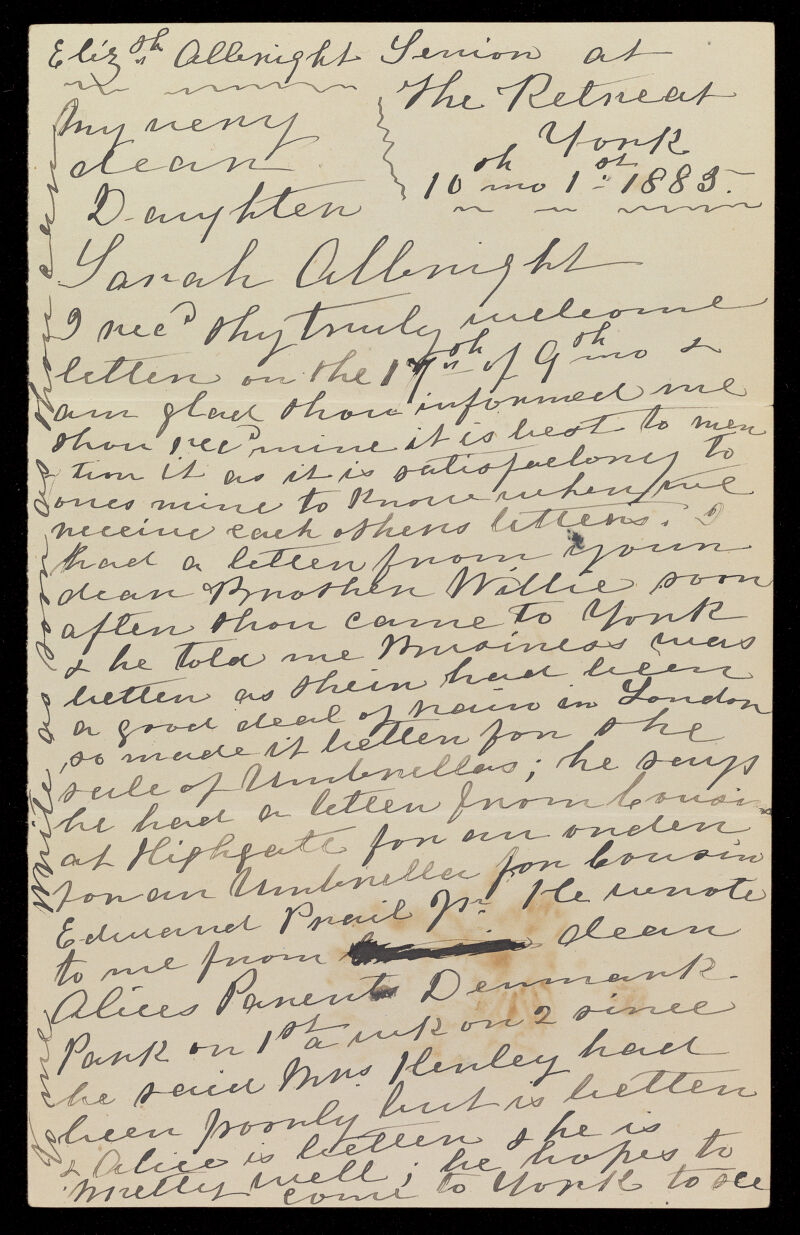 Elizth Allbright Senior at
The Retreat
York
10th mo 1st 1885.
My very
dear
Daughter
Sarah Allbright
I recd thy truly welcome
letter on the 17th of 9th mo &
am glad thou informed me
thou recd mine it is best to men
tion it as it is satisfactory to
ones mine to know when we
receive each others letters. I
had a letter from your
dear Brother Willie soon
after thou came to York
& he told me Business was
better as their had been
a good deal of rain in London
so made it better for the
sale of Umbrellas; he says
he had a letter from Cousin
at Highgate for an order
for an Umbrella for Cousin
Edward Prail Jnr. He wrote
to me from dear
Alices Parents Denmark
Park on 1st a wk or 2 since
he said Mrs. Henley had
been poorly but is better
& Alice is better & he is
pretty well; he hopes to
come to York to see
Write as soon as thou can
to me